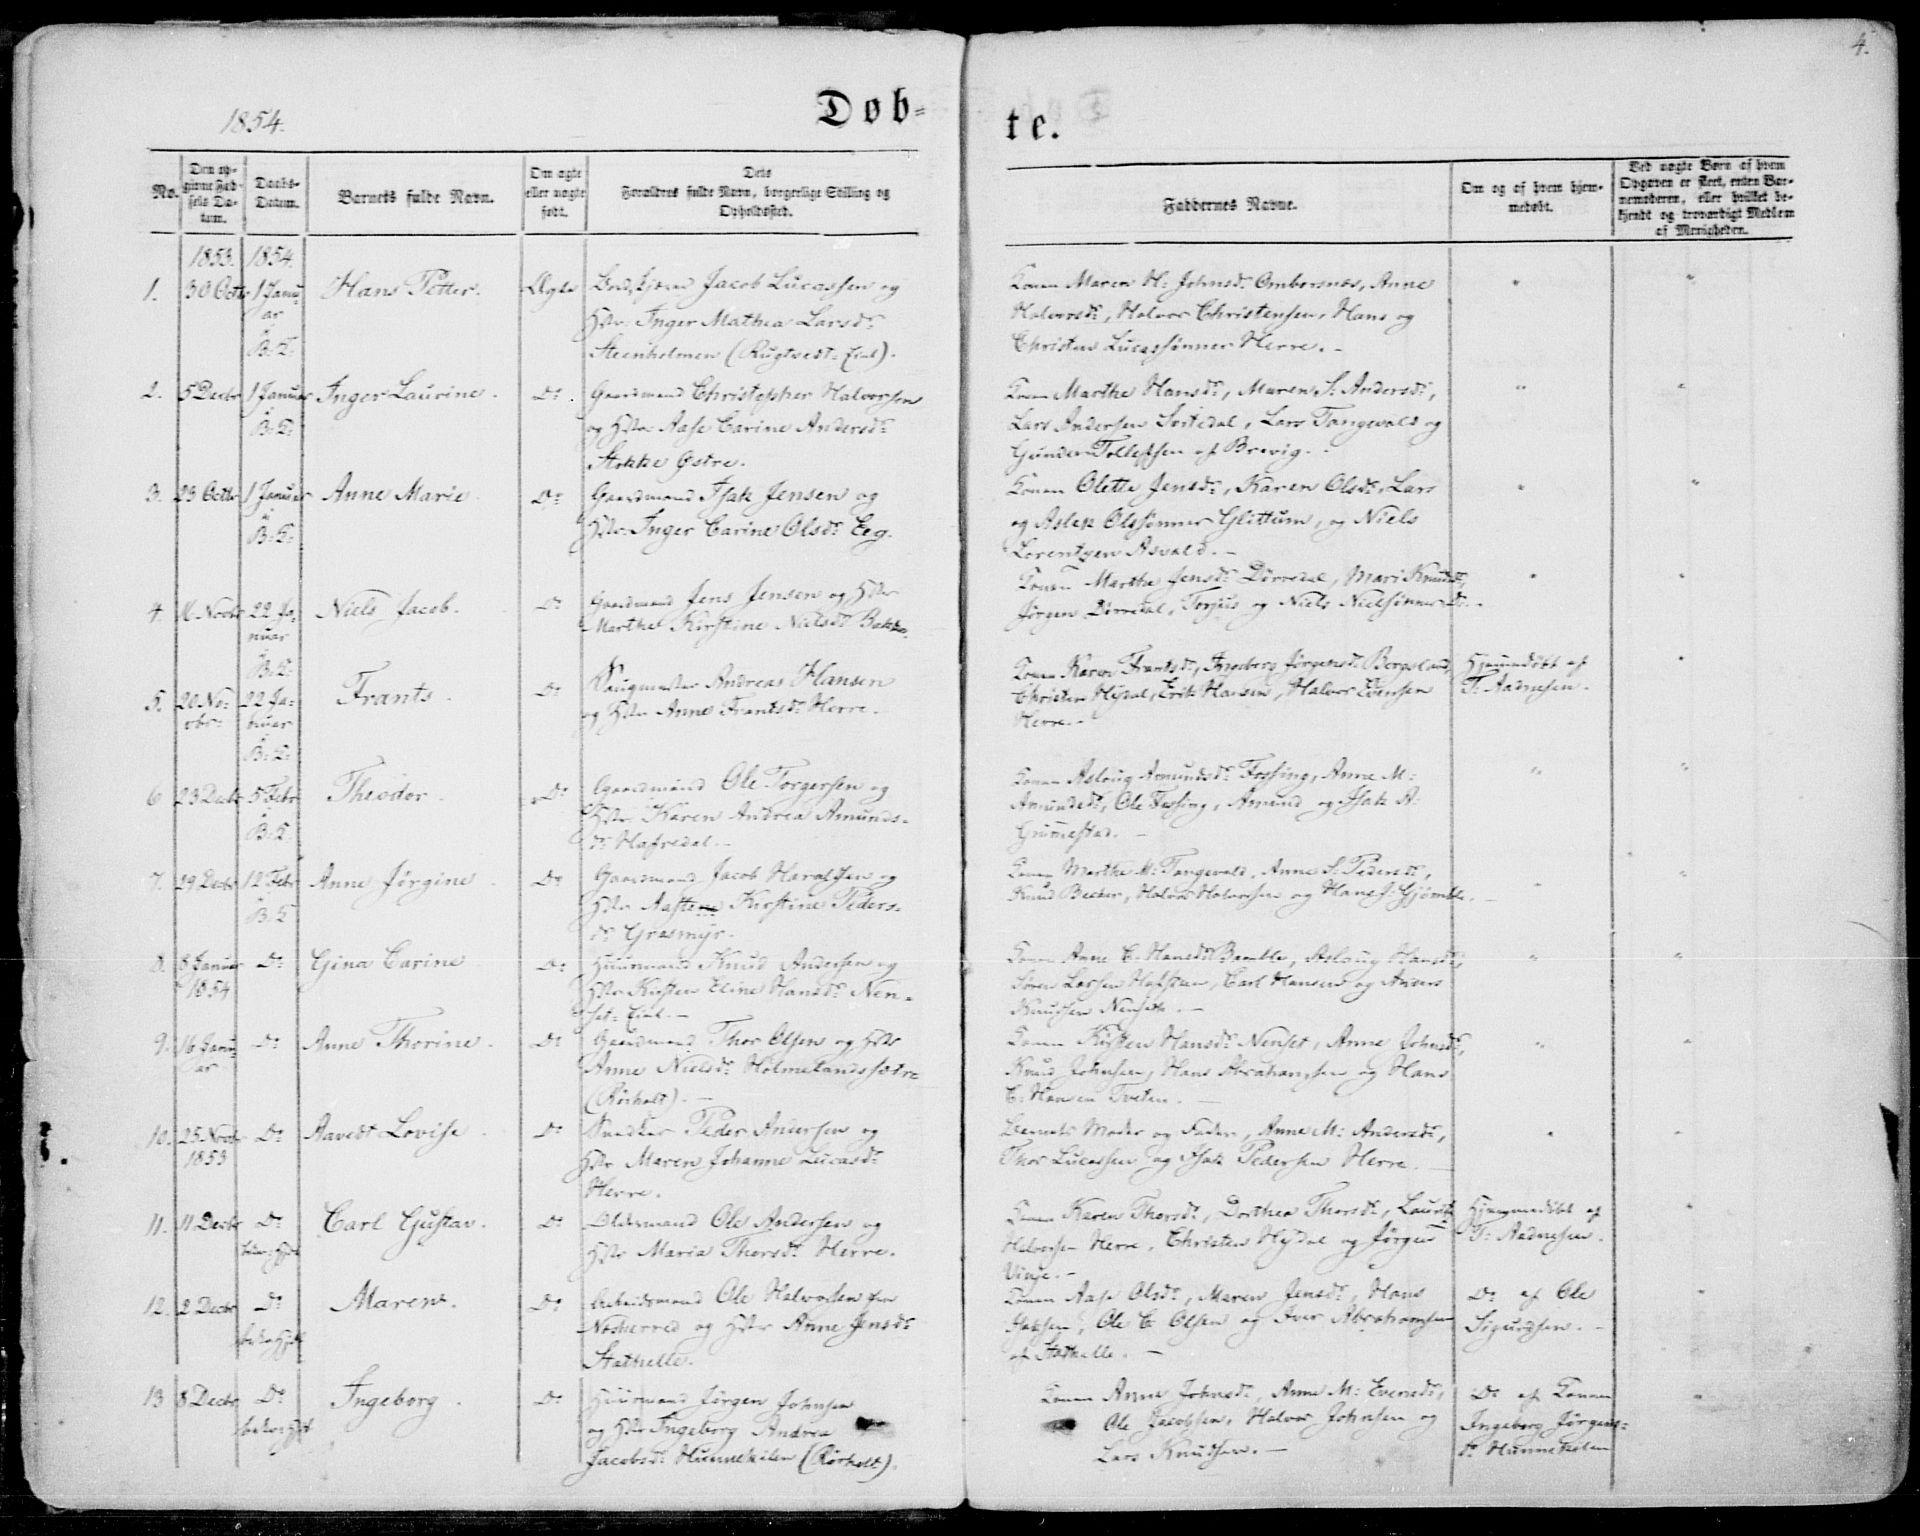 4.
1854.
Døb-
te.
No.
Den op-
givne Fød-
sels Da-
tum.
Daabs-
Datum.
Barnets fulde Navn.
Om ægte
eller uægte
født.
Dets
Forældres fulde Navn, borgerlige Stilling og
Opholdssted.
Faddernes Navne.
Om og af hvem hjem-
medøbt.
Ved uægte Børn af hvem
Opgaven er skeet, enten Bar-
nemoderen, eller hvilket be-
kjendt og troværdigt Medlem
af Menigheden.
1853. 1854.
1. 30 Octbr 1 Janu-
ar
B: K:
Hans Petter.
Ægte
Jacob Lucassen og
Hstr: Inger Mathea Larsdr
Steenholmen (Rugtvedt-Eial).
Konen Maren H: Johnsdr Omborsnæs, Anne
Halvorsdr, Halvor Christensen, Hans og
Christen Lucassønner Herre. -
2. 5 Decbr 1 Januar
B: K:
Inger Laurine.
Do.
Gaardmand Christopher Halvorsen
og Hstr: Aase Carine Andersdr
Stokke Østre.
Konen Marthe Hansdr, Maren S: Andersdr,
Lars Andersen, Lars Tangevald og
Gunder Tollefsen af Brevig. -
3. 23 Octbr 1 Januar
B: K:
Anne Marie
Do
Gaardmand Isak Jensen og
Hstr: Inger Carine Olsdr Eeg.
Konen Olette Jensdr, Karen Olsdr, Lars
og Aslak Olssønner Glittum, og Niels
Lorentzen Asvald. -
4. 11 Novbr 22 Ja-
nuar
B: K:
Niels Jacob.
Do
Gaardmand Jens Jensen og Hstr
Marthe Kirstine Nielsdr Bakke.
Konen Marthe Jensdr Dørredal, Mari Knudsdr,
Jørgen Dørredal, Torjus og Niels Nielsønner Do. -
5. 20 No-
vbr: 22 Ja-
nuar
B: K:
Frants.
Do
Saugmester Andreas Hansen
og Hstr Anne Frantsdr Herre.
Konen Karen Frantsdr, Ingeborg Jørgensdr Bergsland,
Christen Hydal, Erik Hansen, Halvor Evensen
Herre. -
Hjemmedøbt af
T: Aadnesen.
6 23 Decbr 5 Febr
B: K:
Theodor.
Do
Gaardmand Ole Torgersen og
Hstr: Karen Andrea Amunds-
dr Hafredal. -
Konen Asloug Amundsdr Fossing, Anne M:
Amundsdr, Ole Fossing, Amund og Isak A:
Grummestad. -
7. 29 Decbr 12 Febr
B: K
Anne Jørgine
Do
Gaardmand Jacob Haraldsen og
Hstr Aaste Kirstine Peders-
dr Grasmyr.
Konen Marthe M: Tangevald, Anne S: Pedersdr,
Knud Becker, Halvor Halvorsen og Hans J: Gjømle. -
8. 8 Januar
1854
Do
Gina Carine
Do
Huusmand Knud Andersen og
Hstr Kirsten Eline Hansdr Nen-
set-Eial. -
Konen Anne C. Hansdr Bamble, Asloug Hansdr,
Søren Larsen Hafsten, Carl Hansen og Anders
Knudsen Nenseth. -
9. 16 Janu-
ar
Do
Anne Thorine.
Do
Gaardmand Thor Olsen og Hstr
Anne Nielsdr Holmelandssætre
(Rørholt). -
Konen Kirsten Hansdr Nenset, Anne Johnsdr,
Knud Johnsen, Hans Abrahamsen og Hans
C: Hansen Tveten. -
10. 25 Novbr
1853
Do
Aavedt Lovise
Do
Snedker Peder Andersen og
Hstr Maren Johanne Lucasdr
Herre.
Barnets Moder og Fader, Anne M: Andersdr,
Thor Lucassen og Isak Pedersen Herre. -
11. 11 Decbr Do
Carl Gustav.
Do
Oldermand Ole Andersen og
Hstr Maria Thorsdr Herre.
Konen Karen Thorsdr, Dorthea Thorsdr, Laurits
Halvorsen Herre, Christen Hydal og Jørgen
Vinje. -
Hjemmedøbt af
T: Aadnesen.
12. 2 Decbr Do
Maren.
Do
Arbeidsmand Ole Halvorsen fra
Næsherred og Hstr Anne Jensdr
Stathelle.
Konen Aase Olsdr, Maren Jensdr, Hans
Isaksen, Ole C: Olsen og Iver Abrahamsen
af Stathelle. -
Do af Ole
Sigurdsen. -
13 8 Decbr Do
Ingeborg.
Do
Huusmand Jørgen Johnsen
og Hstr Ingeborg Andrea
Jacobsdr Hunnekilen (Rørholt).
Konen Anne Johnsdr, Anne M: Evensdr,
Ole Jacobsen, Halvor Johnsen og
Lars Knudsen. -
Do af Konen
Ingeborg Jørgens-
dr Hunnekilen